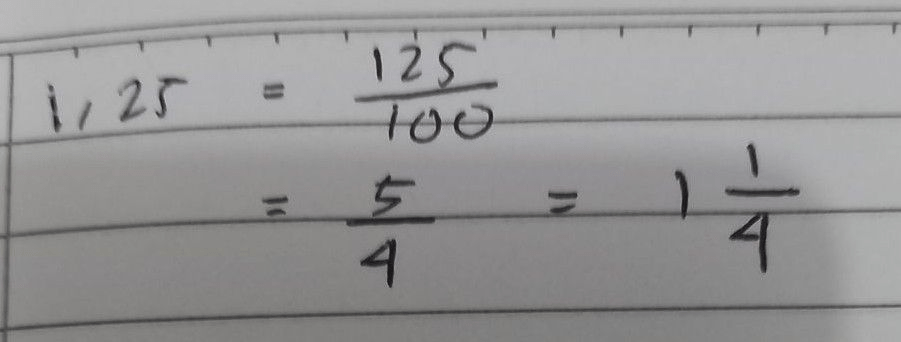 1,25 = 125/100
= 5/4 = 1 1/4